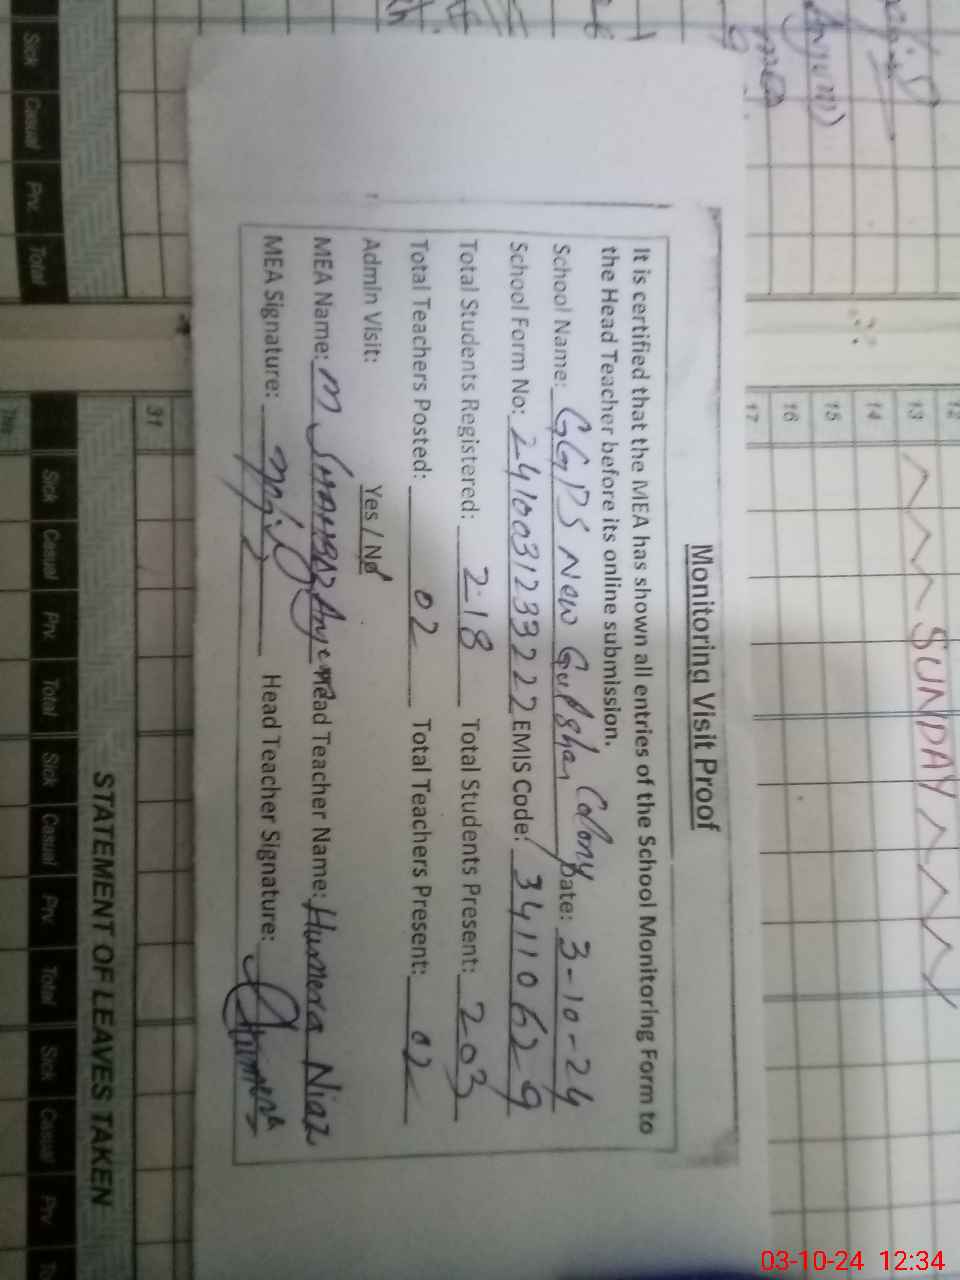 Monitoring Visit Proof
It is certified that the MEA has shown all entries of the School Monitoring Form to
the Head Teacher before its online submission.
School Name: GGPS New Gulshan Colony Date: 3-10-24
School Form No: 2410031233222 EMIS Code: 34110629
Total Students Registered: 218 Total Students Present: 203
Total Teachers Posted: 02 Total Teachers Present: 02
Admin Visit: Yes / No
MEA Name: M SHAHBAZ Anjum Head Teacher Name: Humera Niaz
MEA Signature: Head Teacher Signature: Humera
SUNDAY
12
13
14
15
16
17
31
STATEMENT OF LEAVES TAKEN
Sick Casual Prv. Total Sick Casual Prv. Total Sick Casual Prv
Sick Casual Prv. Total
Anjum)
MEA
03-10-24 12:34